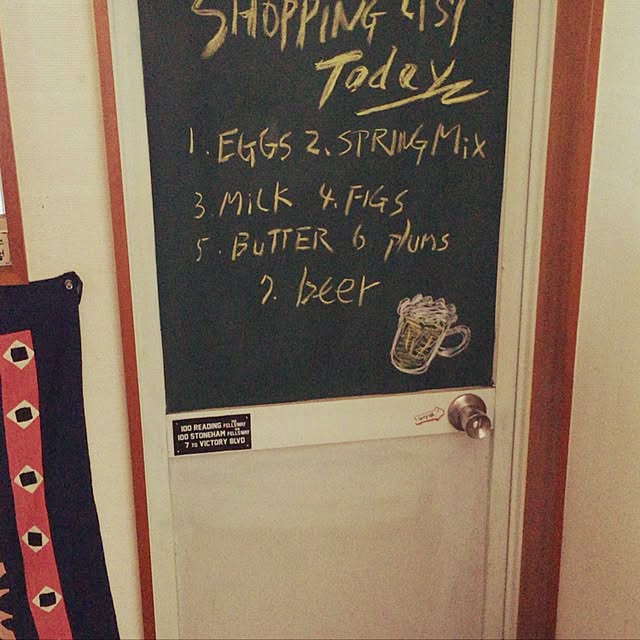 SHOPPING LIST
Today
1. EGGS 2. SPRING Mix
3. MILK 4. FIGS
5. BUTTER 6 plums
7. beer
100 READING TO FELLSWAY
100 STONEHAM TO FELLSWAY
7 TO VICTORY BLVD